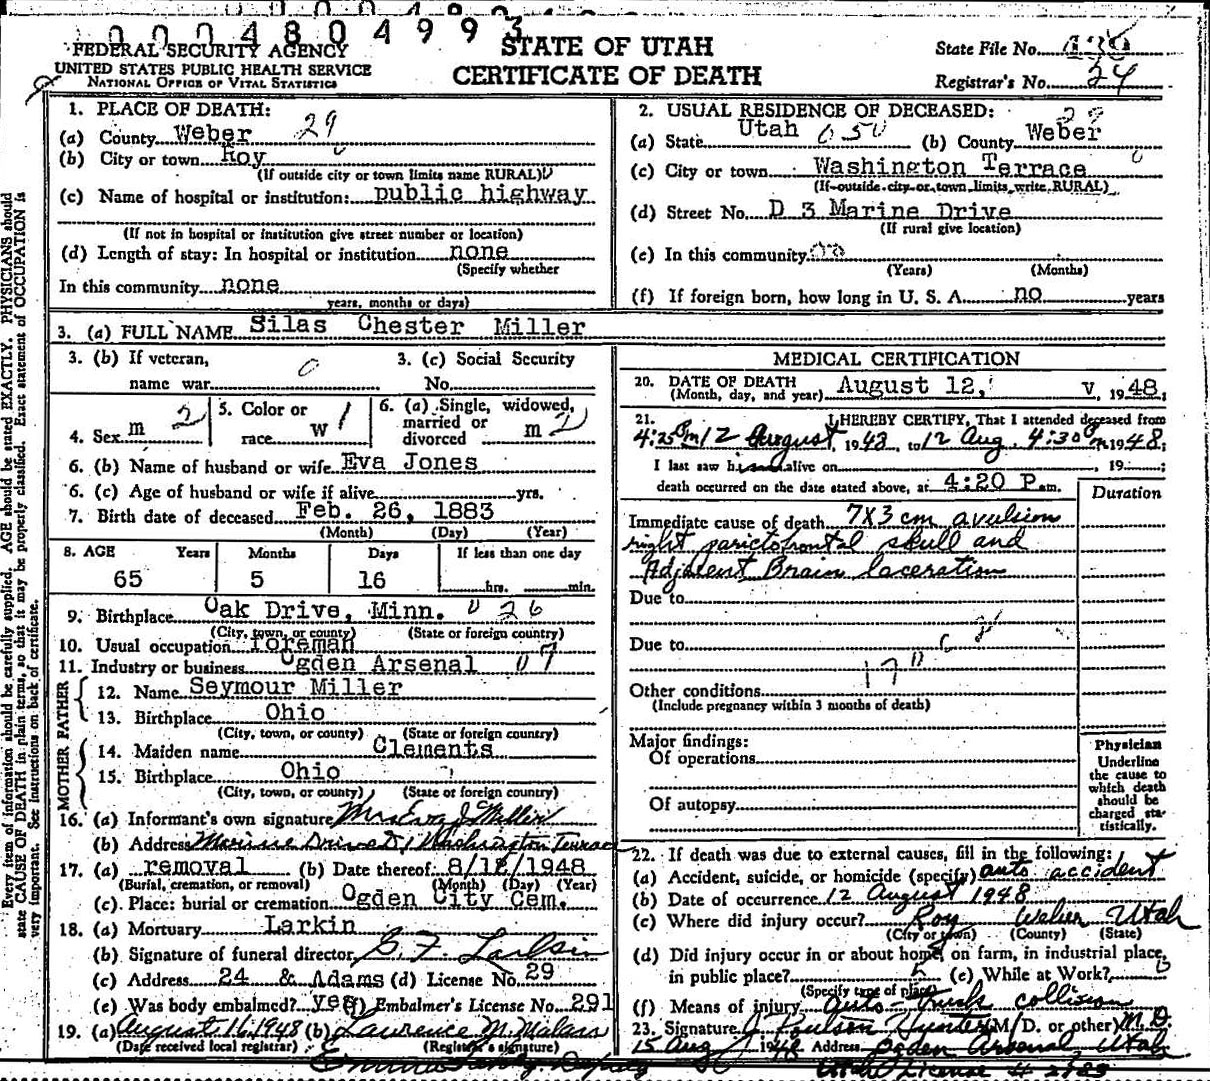 0004804993
FEDERAL SECURITY AGENCY
UNITED STATES PUBLIC HEALTH SERVICE
NATIONAL OFFICE OF VITAL STATISTICS
STATE OF UTAH
CERTIFICATE OF DEATH
State File No.
Registrar's No. 24
Every item of information should be carefully supplied. AGE should be stated EXACTLY. PHYSICIANS should
state CAUSE OF DEATH in plain terms, so that it may be properly classified. Exact statement of OCCUPATION is
very important. See instructions on back of certificate.
1. PLACE OF DEATH:
(a) County Weber 29
(b) City or town Roy
(If outside city or town limits name RURAL)
(c) Name of hospital or institution: public highway
(If not in hospital or institution give street number or location)
(d) Length of stay: In hospital or institution none
(Specify whether
In this community none
years, months or days)
2. USUAL RESIDENCE OF DECEASED: 29
(a) State Utah 050 (b) County Weber
(c) City or town Washington Terrace 0
(If outside city or town limits write RURAL)
(d) Street No. D 3 Marine Drive
(If rural give location)
(e) In this community
(Years) (Months)
(f) If foreign born, how long in U. S. A. no years
3. (a) FULL NAME Silas Chester Miller
3. (b) If veteran, name war 0
3. (c) Social Security No.
4. Sex m 2
5. Color or race W 1
6. (a) Single, widowed, married or divorced m 2
6. (b) Name of husband or wife Eva Jones
6. (c) Age of husband or wife if alive yrs.
7. Birth date of deceased Feb. 26, 1883
(Month) (Day) (Year)
8. AGE Years Months Days If less than one day
65 5 16 hrs. min.
9. Birthplace Oak Drive, Minn. 026
(City, town, or county) (State or foreign country)
10. Usual occupation foreman
11. Industry or business Ogden Arsenal 07
FATHER
12. Name Seymour Miller
13. Birthplace Ohio
(City, town, or county) (State or foreign country)
MOTHER
14. Maiden name Clements
15. Birthplace Ohio
(City, town, or county) (State or foreign country)
16. (a) Informant's own signature Mrs Eva J Miller
(b) Address Marine Drive D, Washington Terrace
17. (a) removal (b) Date thereof 8/16/1948
(Burial, cremation, or removal) (Month) (Day) (Year)
(c) Place: burial or cremation Ogden City Cem.
18. (a) Mortuary Larkin
(b) Signature of funeral director G. F. Larkin
(c) Address 24 & Adams (d) License No. 29
(e) Was body embalmed? yes (f) Embalmer's License No. 291
19. (a) August 16 1948 (b) Laurence M. Malan
(Date received local registrar) (Registrar's signature)
Deputy
MEDICAL CERTIFICATION
20. DATE OF DEATH August 12, V, 1948;
(Month, day, and year)
21. I HEREBY CERTIFY, That I attended deceased from
4:25 Pm 12 August, 1948, to 12 Aug. 4:30 Pm 1948;
I last saw him alive on , 19 ;
death occurred on the date stated above, at 4:20 P m.
Duration
Immediate cause of death 7X3 cm avulsion
right parietofrontal skull and
Adjacent Brain laceration
Due to
Due to
Other conditions
(Include pregnancy within 3 months of death)
Major findings:
Of operations
Of autopsy
Physician
Underline
the cause to
which death
should be
charged sta-
tistically.
22. If death was due to external causes, fill in the following:
(a) Accident, suicide, or homicide (specify) auto accident
(b) Date of occurrence 12 August 1948
(c) Where did injury occur? Roy Weber Utah
(City or town) (County) (State)
(d) Did injury occur in or about home, on farm, in industrial place,
in public place? (e) While at Work?
(Specify type of place)
(f) Means of injury auto-truck collision
23. Signature Poulson Hunter (M. D. or other) M.D.
15 Aug 1948 Address Ogden Arsenal Utah
Utah License # 2985